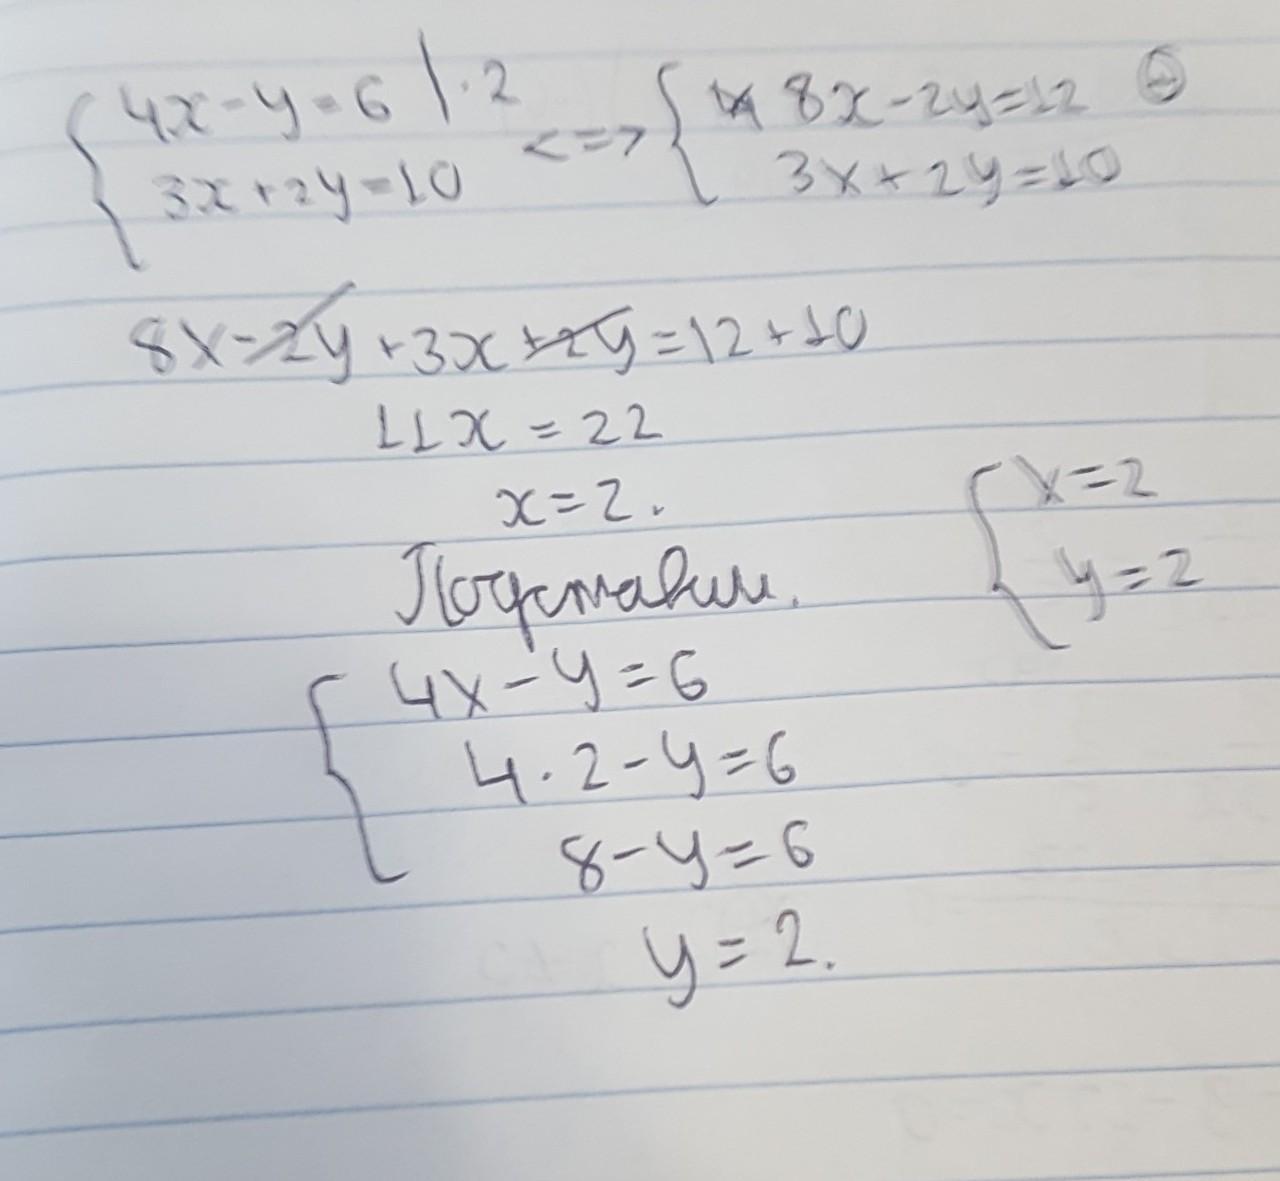 4x-y=6 |·2 <=> 8x-2y=12
3x+2y=10 3x+2y=10
8x-2y+3x+2y=12+10
11x=22
x=2.
Подставим.
x=2
y=2
4x-y=6
4·2-y=6
8-y=6
y=2.